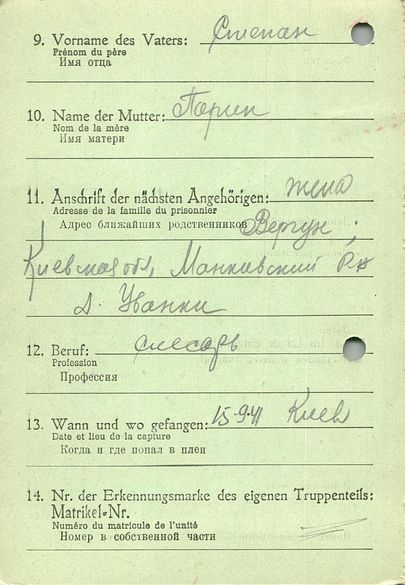 9. Vorname des Vaters: Степан
Prénom du père
Имя отца
10. Name der Mutter:
Nom de la mère
Имя матери
11. Anschrift der nächsten Angehörigen: жена
Adresse de la famille du prisonnier
Адрес ближайших родственников Вергун
Киевская обл, Манкивский р-н
д. Уванки
12. Beruf: слесарь
Profession
Профессия
13. Wann und wo gefangen: 15-9-41 Киев
Date et lieu de la capture
Когда и где попал в плен
14. Nr. der Erkennungsmarke des eigenen Truppenteils:
Matrikel-Nr.
Numéro du matricule de l'unité
Номер в собственной части